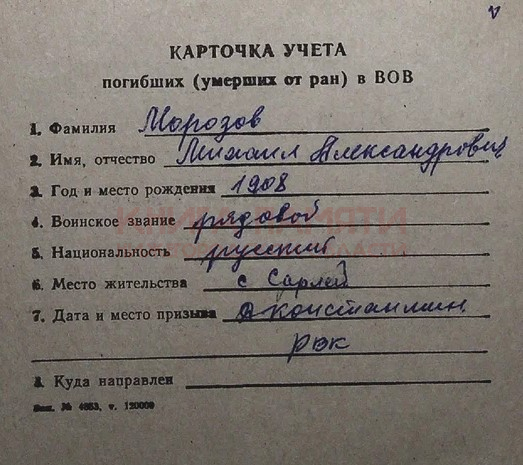 v
КАРТОЧКА УЧЕТА
погибших (умерших от ран) в ВОВ
1. Фамилия Морозов
2. Имя, отчество Михаил Александрович
3. Год и место рождения 1908
4. Воинское звание рядовой
5. Национальность русский
6. Место жительства с Сарлей
7. Дата и место призыва Д константин
РВК
8. Куда направлен
Зак. № 4653, т. 120000